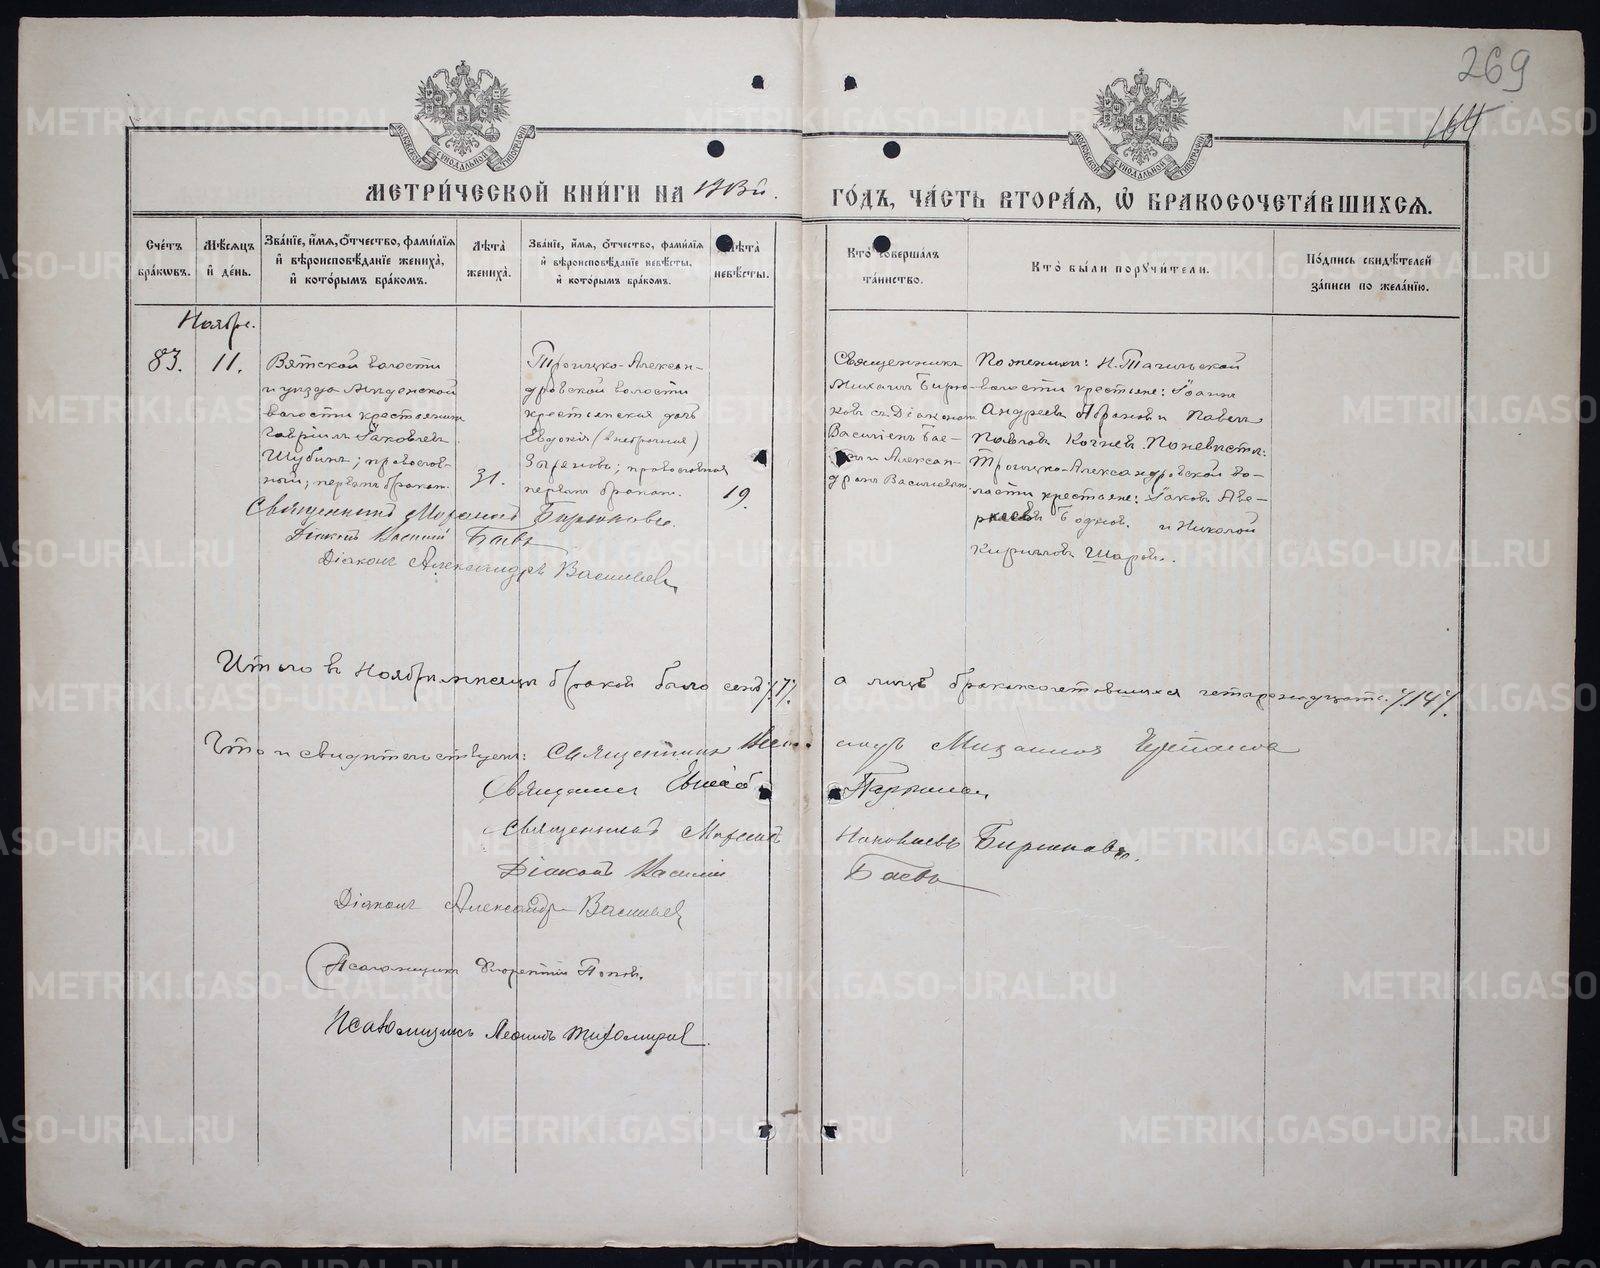 269
164
МЕТРИ́ЧЕСКОЙ КНИ́ГИ НА
ГО́ДЪ, ЧА́СТЬ ВТОРА́Я, Ѽ БРАКОСОЧЕТА́ВШИХСЯ.
Сче́тъ бра́ковъ.
Мѣ́сяцъ и҆ де́нь.
Зва́нїе, и҆́мя, ѻ҆́тчество, фами́лїя и҆ вѣроисповѣ́данїе жениха̀, и҆ кото́рымъ бра́комъ.
Лѣ́та жениха̀.
Зва́нїе, и҆́мя, ѻ҆́тчество, фами́лїя и҆ вѣроисповѣ́данїе невѣ́сты, и҆ кото́рымъ бра́комъ.
Лѣ́та невѣ́сты.
Кто̀ соверша́лъ та́инство.
Кто̀ бы́ли порꙋчи́тели.
По́дпись свидѣ́телей за́писи по жела́нїю.
Ноябрь.
83.
11.
Вятской волости
и уѣзда
волости крестьянинъ
Гавріилъ Іаковлевъ
Шубинъ; православ-
ный; первымъ бракомъ.
31.
Троицко-Алексан-
дровской волости
крестьянская дочь
Евдокія (внебрачная)
православная
первымъ бракомъ.
19.
Священникъ
Михаилъ Бирю-
ковъ съ Діакономъ
Василіемъ Бае-
вымъ и Алексан-
дромъ Васильевымъ.
По женихѣ: Н. Тагильской
волости крестьяне: Іоаннъ
Андреевъ и Павелъ
Павловъ По невѣстѣ:
Троицко-Александровской во-
лости крестьяне: Іаковъ Аве-
ркіевъ и Николай
Кирилловъ Шаровъ.
Священникъ Михаилъ Бирюковъ.
Діаконъ Василій Баевъ
Діаконъ Александръ Васильевъ
Итого в Ноябрѣ мѣсяцѣ браковъ было семь /.7/.
а лицъ бракосочетавшихся четырнадцать. /.14/.
Что и свидѣтельствуемъ: Священникъ
Священникъ
Священникъ Михаилъ
Бирюковъ.
Діаконъ Василій
Баевъ
Діаконъ Александръ Васильевъ
Псаломщикъ Флорентій Поповъ.
Псаломщикъ Леонидъ Тихомировъ.
METRIKI.GASO-URAL.RU